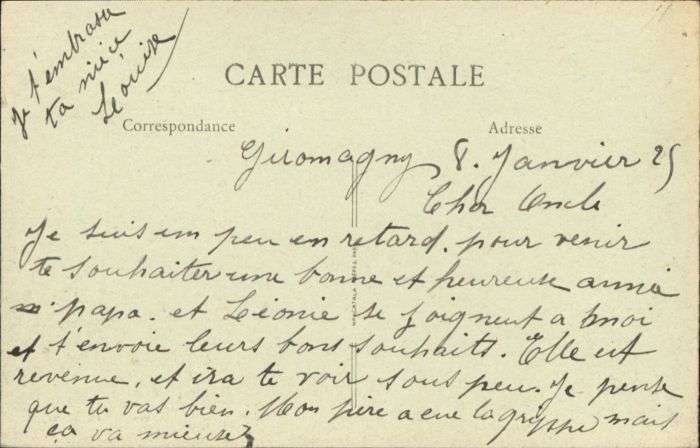 je t'embrasse
ta nièce
Léonise
CARTE POSTALE
Correspondance
Adresse
Giromagny 8. Janvier 25
Cher Oncle
Je suis un peu en retard. pour venir
te souhaiter une bonne et heureuse année
papa. et Léonie se joignent a moi
et t'envoie leurs bons souhaits. Elle est
revenue, et ira te voir sous peu. Je pense
que tu vas bien. Mon père a eue la gryppe mais
ça va mieux